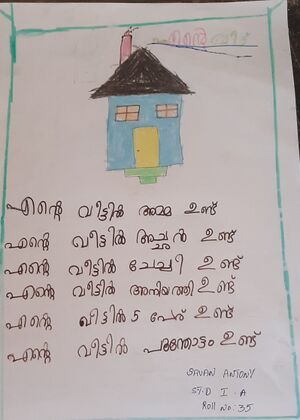 എന്റെ വീട്
എന്റെ വീട്ടിൽ അമ്മ ഉണ്ട്
എന്റെ വീട്ടിൽ അച്ഛൻ ഉണ്ട്
എന്റെ വീട്ടിൽ ചേച്ചി ഉണ്ട്
എന്റെ വീട്ടിൽ അനിയത്തി ഉണ്ട്
എന്റെ വീട്ടിൽ 5 പേര് ഉണ്ട്
എന്റെ വീട്ടിൽ പൂന്തോട്ടം ഉണ്ട്
SAVAN ANTONY
STD I A
Roll No: 35